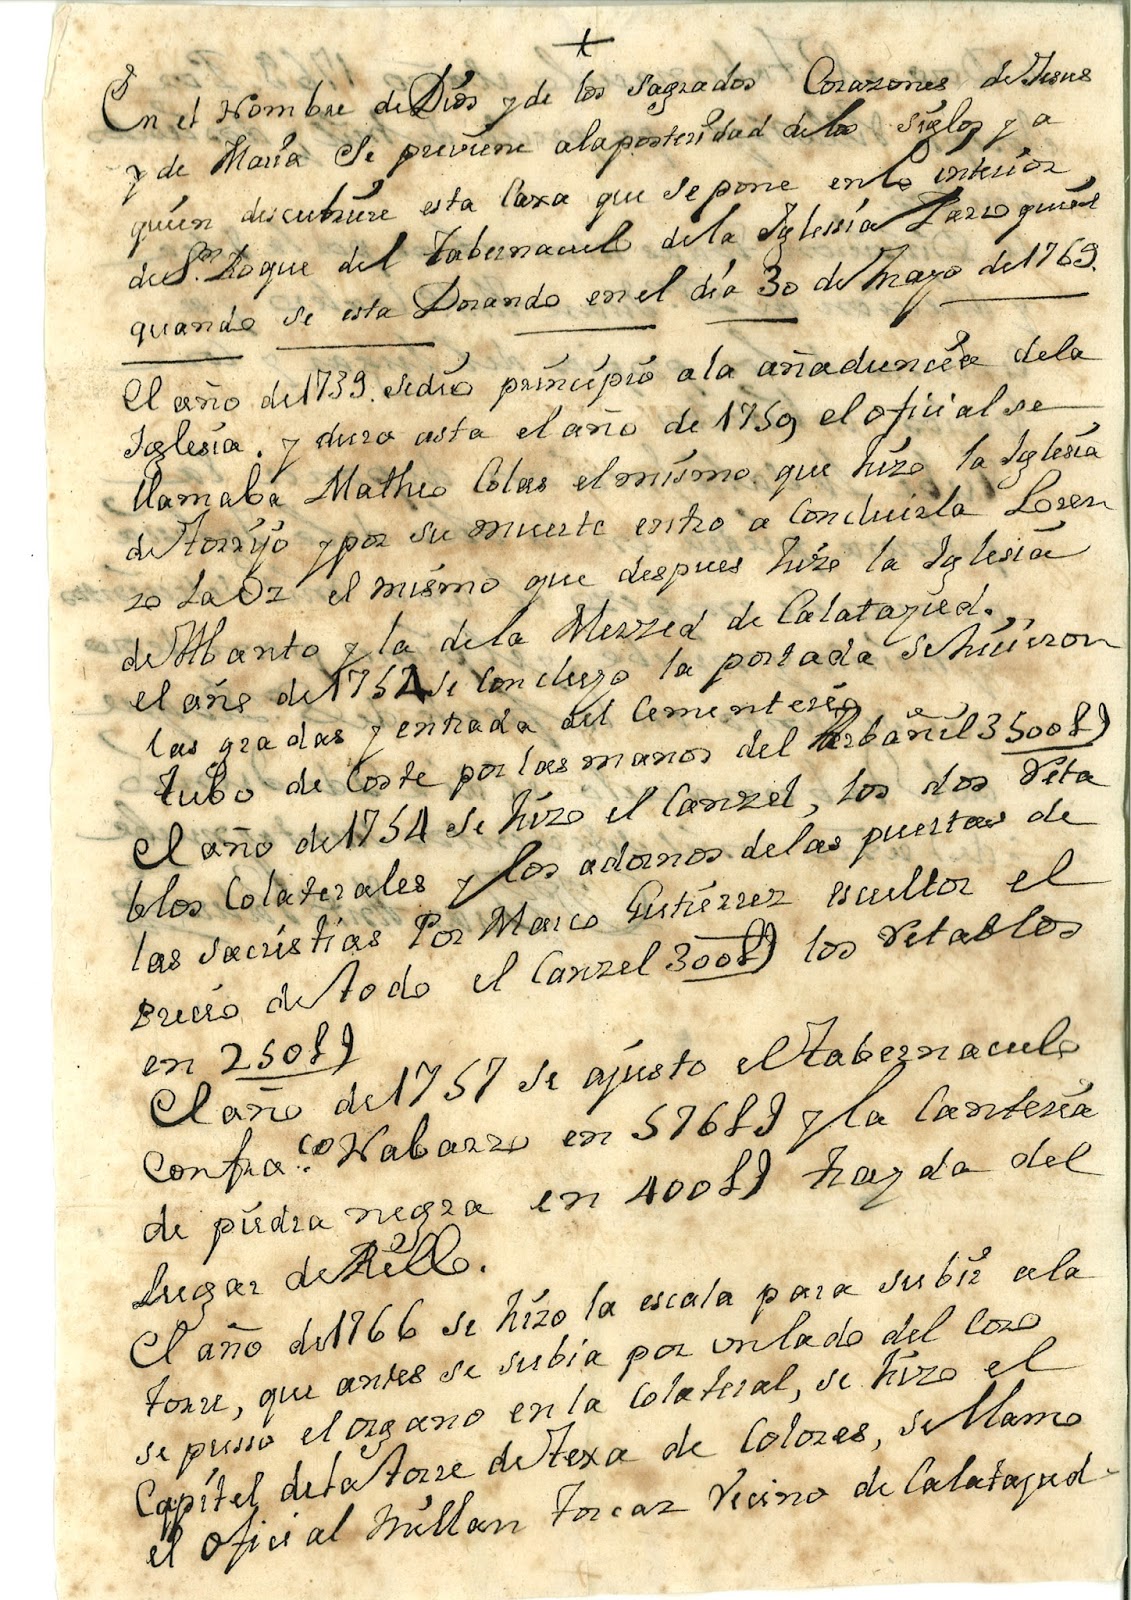 +
En el Nombre de Dios y de los sagrados Corazones de Jesus
y de María Se previene ala posteridad de los siglos y a
quien descubriere esta Caxa que se pone en lo interior
de Sn. Roque del Tabernaculo de la Iglesia Parroquial
quando se esta Dorando en el día 30 de Mayo de 1769.
El año de 1739. se dio principio a la añadencia de la
Iglesia. y duro asta el año de 1759 el oficial se
llamaba Matheo Colas el mismo que hizo la Iglesia
de Torrijo y por su muerte entro a Concluirla Loren
zo La Oz el mismo que despues hizo la Iglesia
de Abanto y la de la Merzed de Calatayud.
el año de 1752 se Concluyo la portada se hicieron
las gradas y entrada del Cementerio
tubo de Coste por las manos del Arbañil 3500 L)
El año de 1754 se hizo el Canzel, los dos Reta
blos Colaterales y los adornos de las puertas de
las sacristias Por Marco Gutiérrez escultor el
Precio de todo el Canzel 300 L) los Retablos
en 250 L)
El año de 1757 se ajusto el Tabernaculo
Con fra.co Nabarro en 576 L) y la Canteria
de piedra negra en 400 L) trayda del
Lugar de Rillo.
El año de 1766 se hizo la escala para subir a la
torre, que antes se subia por un lado del Coro
se pusso el organo en la Colateral, se hizo el
Capitel de la torre de Texa de Colores, se llamo
el Oficial Millan Vecino de Calatayud